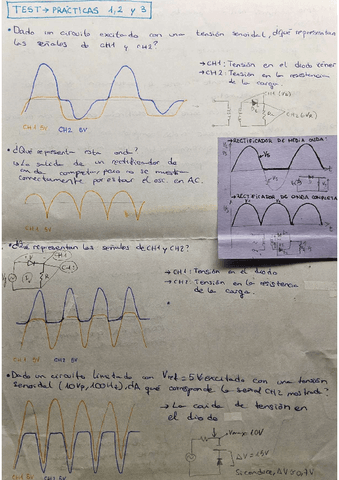 TEST → PRÁCTICAS 1,2 y 3
• Dado un circuito excitado con una tensión senoidal, ¿Qué representan
las señales de CH1 y CH2?
→ CH1: Tensión en el diodo
→ CH2: Tensión en la resistencia
de la carga.
CH1 5V CH2 5V
• ¿Qué representa esta onda?
La salida de un rectificador de
onda completa pero no se muestra
correctamente por estar el osc. en AC.
→ RECTIFICADOR DE MEDIA ONDA
→ RECTIFICADOR DE ONDA COMPLETA
• ¿Qué representan las señales de CH1 y CH2?
→ CH1: Tensión en el diodo
→ CH2: Tensión en la resistencia
de la carga.
CH1 5V CH2 5V
• Dado un circuito limitado con Vref = 5V excitada con una tensión
senoidal (10Vp, 100Hz), ¿A qué corresponde la señal CH2 mostrada?
→ La caída de tensión en
el diodo
Vmax = 10V
CH2 5V